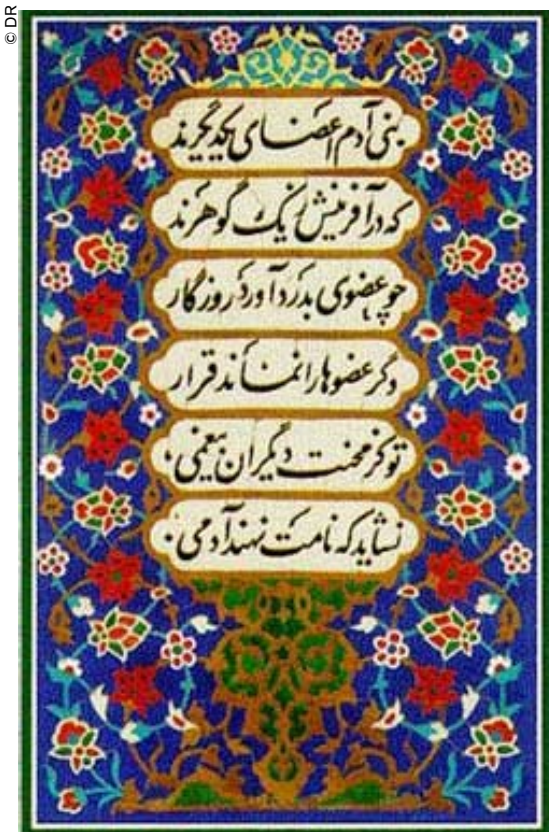 © DR
بنی آدم اعضای یکدیگرند
که در آفرینش ز یک گوهرند
چو عضوی بدرد آورد روزگار
دگر عضوها را نماند قرار
تو کز محنت دیگران بیغمی،
نشاید که نامت نهند آدمی.